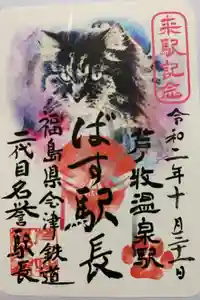 来駅記念
令和二年十月二十一日
芦ノ牧温泉駅
ばす駅長
福島県会津鉄道
二代目名誉駅長